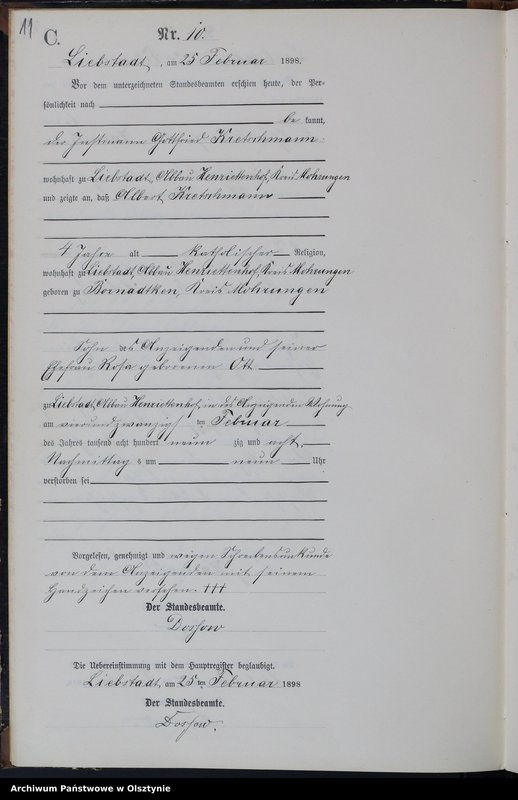 11
C.
Nr. 10.
Liebstadt, am 25 Februar 1898.
Vor dem unterzeichneten Standesbeamten erschien heute, der Per-
sönlichkeit nach
be kannt,
der Instmann Gottfried Kretschmann
wohnhaft zu Liebstadt, Abbau Henriettenhof, Kreis Mohrungen
und zeigte an, daß Albert Kretschmann
4 Jahre alt katholischer Religion,
wohnhaft zu Liebstadt, Abbau Henriettenhof, Kreis Mohrungen
geboren zu Kreis Mohrungen
Sohn des Anzeigenden und seiner
Ehefrau Rosa geborenen Ott
zu Liebstadt, Abbau Henriettenhof, in des Anzeigenden Wohnung
am vierundzwanzigsten Februar
des Jahres tausend acht hundert neun zig und acht,
Nachmittags um neun Uhr
verstorben sei
Vorgelesen, genehmigt und wegen Schreibensunkunde
von dem Anzeigenden mit seinem
Handzeichen versehen. +++
Der Standesbeamte.
Die Uebereinstimmung mit dem Hauptregister beglaubigt.
Liebstadt, am 25 ten Februar 1898
Der Standesbeamte.
Archiwum Państwowe w Olsztynie